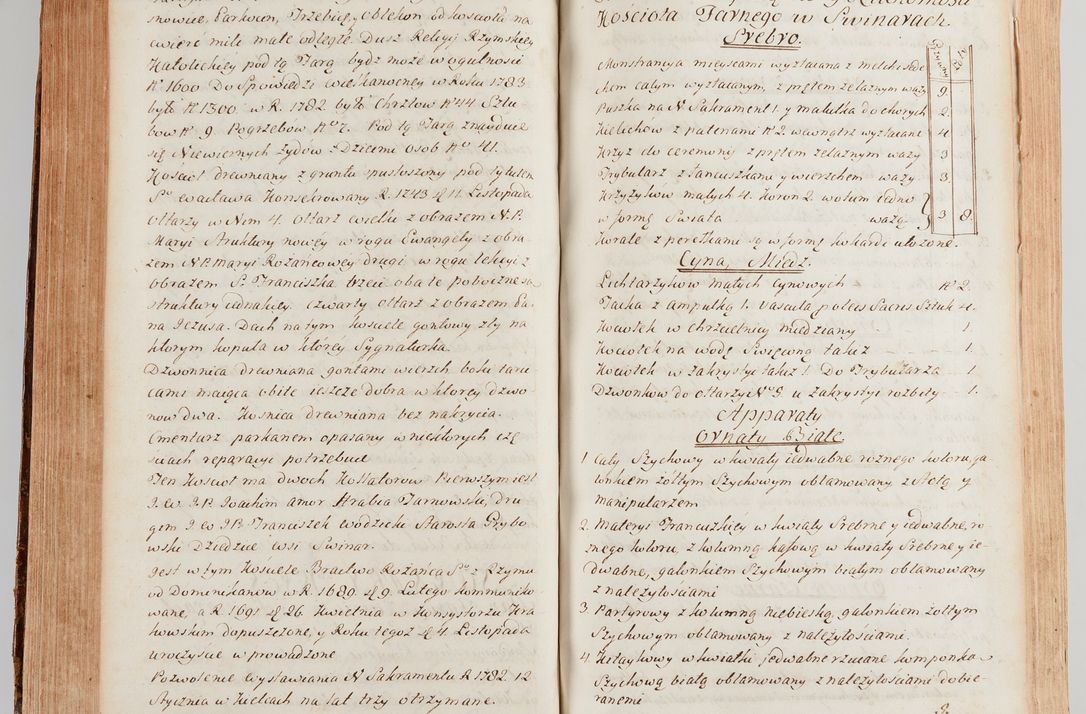 snowie, Parkow, Trzebieży obłekom od kościoła na
cwierć mile małe odległe. Dusz Religij Rzymskiey
Katolickiey pod tą Farą bydz może w ogulności
N° 1600 Do Spowiedzi wielkanocney w Roku 1783
było N° 1300 w R. 1782 było Chrztow N° 44 Szlu
bow N° 9. Pogrzebow N° 7. Pod tą Farą znayduie
się Niewiernych Zydów z Dziecmi osob N° 41.
Kościoł drewniany z gruntu spustoszony pod tytułem
S° wacława Konsekrowany R. 1743 d. 11. Listopada
Ołtarzy w Nim 4. ołtarz wielki z obrazem N. P.
Maryi Struktury nowey w rogu Ewangely z obra-
zem N. P. Maryi Rożańcowey drugi w rogu lekcyi z
obrazem S° Franciszka trzeci oba te poboczne są
struktury iednakiey. czwarty ołtarz z obrazem Pa-
na Jezusa. Dach na tym kosciele gontowy zły na
ktorym kopuła w ktorey Sygnaturka
Dzwonnica drewniana gontami wierzch boki tarci
cami maiąca obite ieszcze dobra w ktorey dzwo
now dwa. Kośnica drewniana bez nakrycia.
Cmentarz parkanem opasany w niektórych czę
sciach reparacyi potrzebuie
Ten Kościoł ma dwoch Kollatorow Pierwszym iest
J. W. J. P. Joachim amor Hrabia Tarnowski, dru
gim J W JP. Franciszek wodzicki Starosta Grybo
wski Dziedzic wsi Swinar.
Jest w tym kościele Bractwo Rożańca S° z Rzymu
od Dominikanow w R. 1689 d. 9. Lutego kommuniko
wane, a R. 1691 d. 26 Kwietnia w Konsystorzu Kra
kowskim dopuszczone, y Roku tegoż d. 4. Listopada
uroczyście w prowadzone
Pozwolenie wystawiania N Sakramentu R 1782 12
Stycznia w Kielcach na lat trzy otrzymane.
Kościoła Farnego w Swinarach
Srebro.
Grzywny
Monstrancya mieyscami wyzłacana z melchisede
chem całym wyzłacanym, z prętem żelaznym waży 9
Puszka na N Sakrament 1. y malutka do chorych 2
Kielichow z patenami N° 2 wewnątrz wyzłacane 4
Krzyż do ceremonij z prętem żelaznym waży 3
Trybularz z łancuszkami y wierzchem waży 3
Krzyżykow małych 4. Koron 2. wotum iedno
w formę Swiata ważą 3 8
Korale z perełkami są w formę kokardy ułożone.
Cyna, Miedz.
Lichtarzykow małych cynowych N° 2.
Tacka z ampułką 1. Vascula p oleis Sacris Sztuk 4.
Kociołek w chrzcielnicy miedziany 1.
Kociołek na wodę Swięconą takiż 1.
Kociołek w zakrystyi takiż 1. Do Trybularza 1
Dzwonkow do ołtarzy N° 9. u zakrystyi rozbity 1.
Apparaty
Ornaty Białe.
1 Cały Szychowy w kwiaty iedwabne roznego koloru, ga
lonkiem żołtym Szychowym oblamowany z Stołą y
Manipularzem
2. Materyi Francuzkiey w kwiaty Srebrne y iedwabne, ro
znego koloru, z kolumną kasową w kwiaty Srebrne y ie-
dwabne, galonkiem Szychowym białym oblamowany
z należytościami
3 Partyrowy z kolumną niebieską, galonkiem żołtym
Szychowym oblamowany z należytościami.
4. Kitaykowy w kwiatki jedwabne rzucane kamponka
Szychową białą oblamowany z należytościami dobie-
ranemi